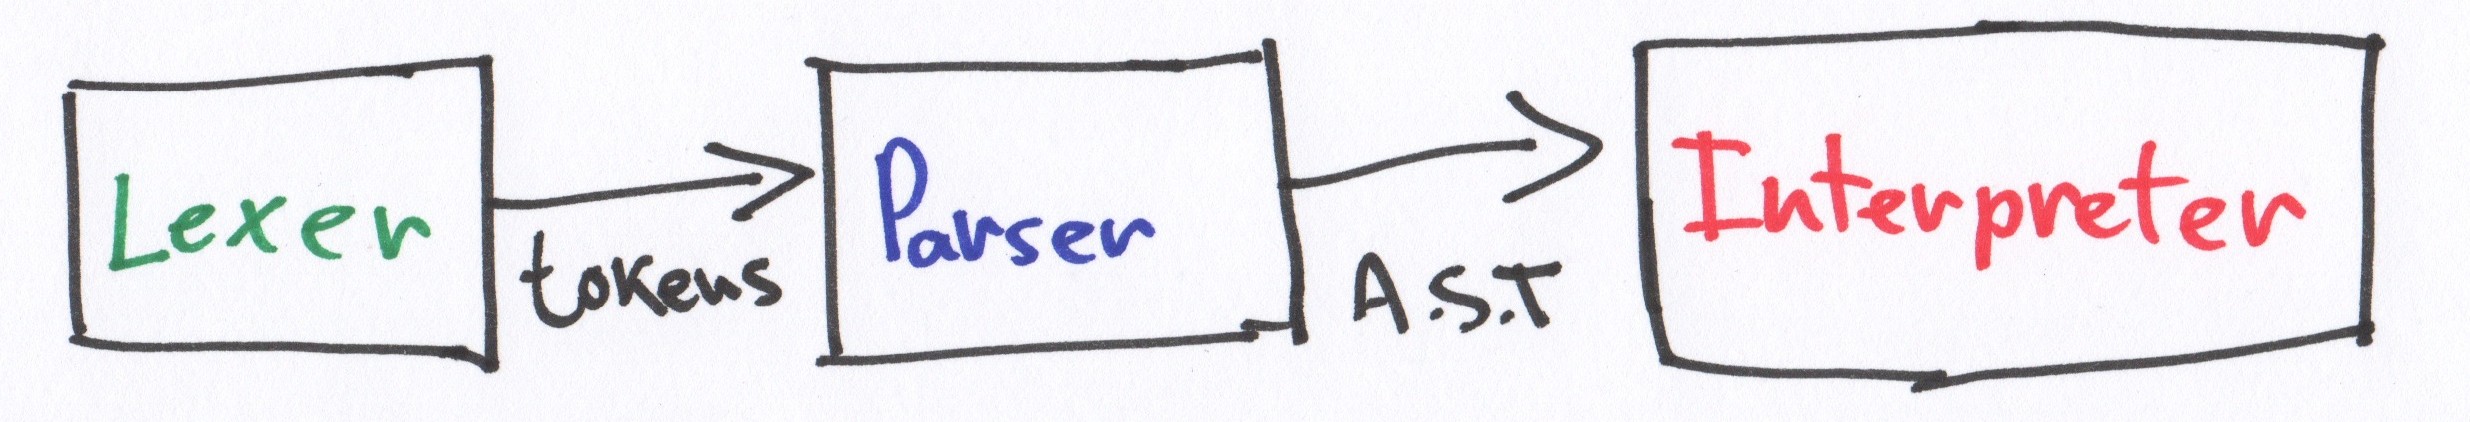 Lexer
tokens
Parser
A.S.T
Interpreter